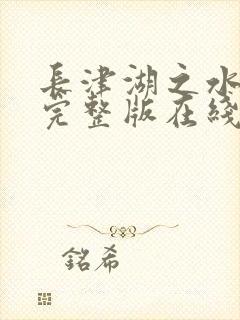 長津湖之水
完整版在綫
銘希